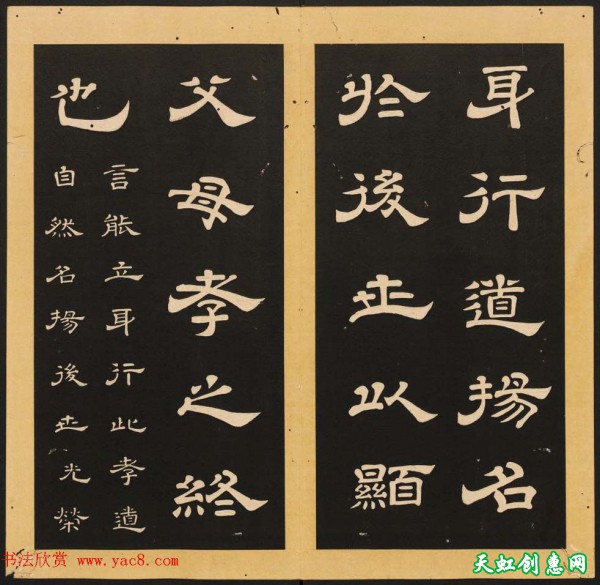 身行道揚名
於後世以顯
父母孝之終
也
言能立身行此孝道
自然名揚後世光榮
书法欣赏 www.yac8.com
天虹创惠网